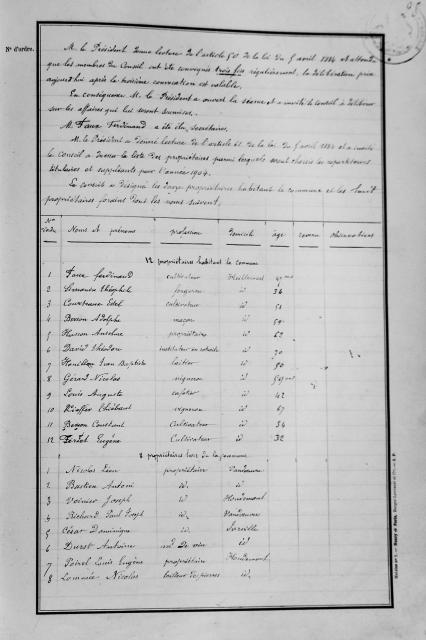 Nos d'ordre.
M. le Président donne lecture de l'article 50 de la loi du 5 avril 1884 et attendu
que les membres du Conseil ont été convoqués trois fois régulièrement, la délibération prise
aujourd'hui après la troisième convocation est valable.
En conséquence M. le Président a ouvert la séance et a invité le conseil à délibérer
sur les affaires qui lui seront soumises.
M. Faux Ferdinand a été élu secrétaire.
M. le Président a donné lecture de l'article de la loi du 5 avril 1884 et a invité
le conseil à dresser la liste des propriétaires parmi lesquels seront choisis les répartiteurs
titulaires et suppléants pour l'année 1904.
Le conseil a désigné les douze propriétaires habitant la commune et les huit
propriétaires forains dont les noms suivent.
Nos d'ordre Noms et prénoms profession domicile âge revenu observations
12 propriétaires habitant la commune
1 Faux Ferdinand cultivateur
2 Théophile forgeron id 36
3 Edel cultivateur id 51
4 Besson Adolphe maçon id
5 Husson Anselme propriétaire id 62
6 David Théodore instituteur en retraite id 70
7 Jean Baptiste laitier id 50
8 Gérard Nicolas vigneron id
9 Louis Auguste cafetier id 42
10 Thiébaut vigneron id 67
11 Besson Constant Cultivateur id 34
12 Eugène Cultivateur id 32
8 propriétaires hors de la commune
1 Nicolas Léon propriétaire Vandœuvre
2 Bastien Antoni id. id.
3 Voinier Joseph id Houdemont
4 Richard Paul Joseph id. Vandœuvre
5 César Dominique id.
6 Durst Antoine md de vin id
7 Poirel Louis Eugène propriétaire Houdemont
8 Nicolas tailleur de pierres id.